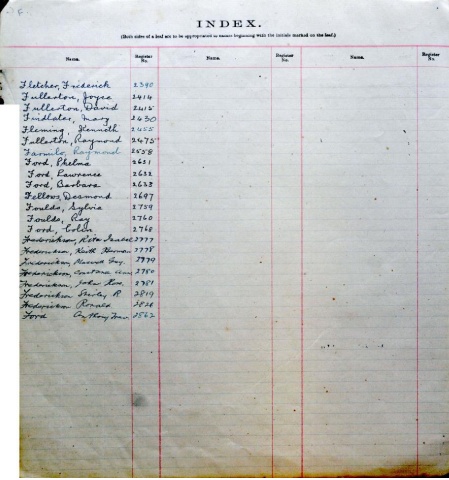 F
INDEX.
(Both sides of a leaf are to be appropriated to names beginning with the initials marked on the leaf.)
Name. Register No. Name. Register No. Name. Register No.
Fletcher, Frederick 2390
Fullerton, Joyce 2414
Fullerton, David 2415
Findlater, Mary 2430
Fleming, Kenneth 2455
Fullerton, Raymond 2475
Raymond 2558
Ford, Thelma 2621
Ford, Lawrence 2632
Ford, Barbara 2633
Fellows, Desmond 2697
Foulds, Sylvia 2759
Foulds, Ray 2760
Ford, Colin 2768
Frederickson, Rita Isabel 2777
Frederickson, Keith Norman 2778
Frederickson, 2779
Frederickson, 2780
Frederickson, John 2781
Frederickson Shirley R. 2819
Frederickson Ronald
Ford Anthony 2862